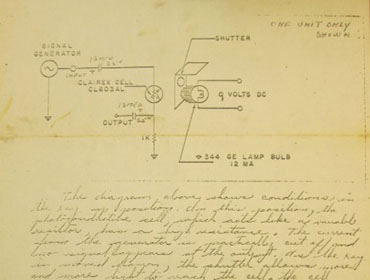 ONE UNIT ONLY
SHOWN
SHUTTER
SIGNAL
GENERATOR
INPUT
CLAIREX CELL
CL603AL
9 VOLTS DC
OUTPUT
1K
344 GE LAMP BULB
12 MA
The diagram above shows conditions in
the key up position. In this position, the
photoconductive cell, which acts like a variable
resistor, has a high resistance. The current
from the generator is practically cut off and
no signal appears at the output. As the key
is moved down, the shutter allows more
and more light to reach the cell, the cell